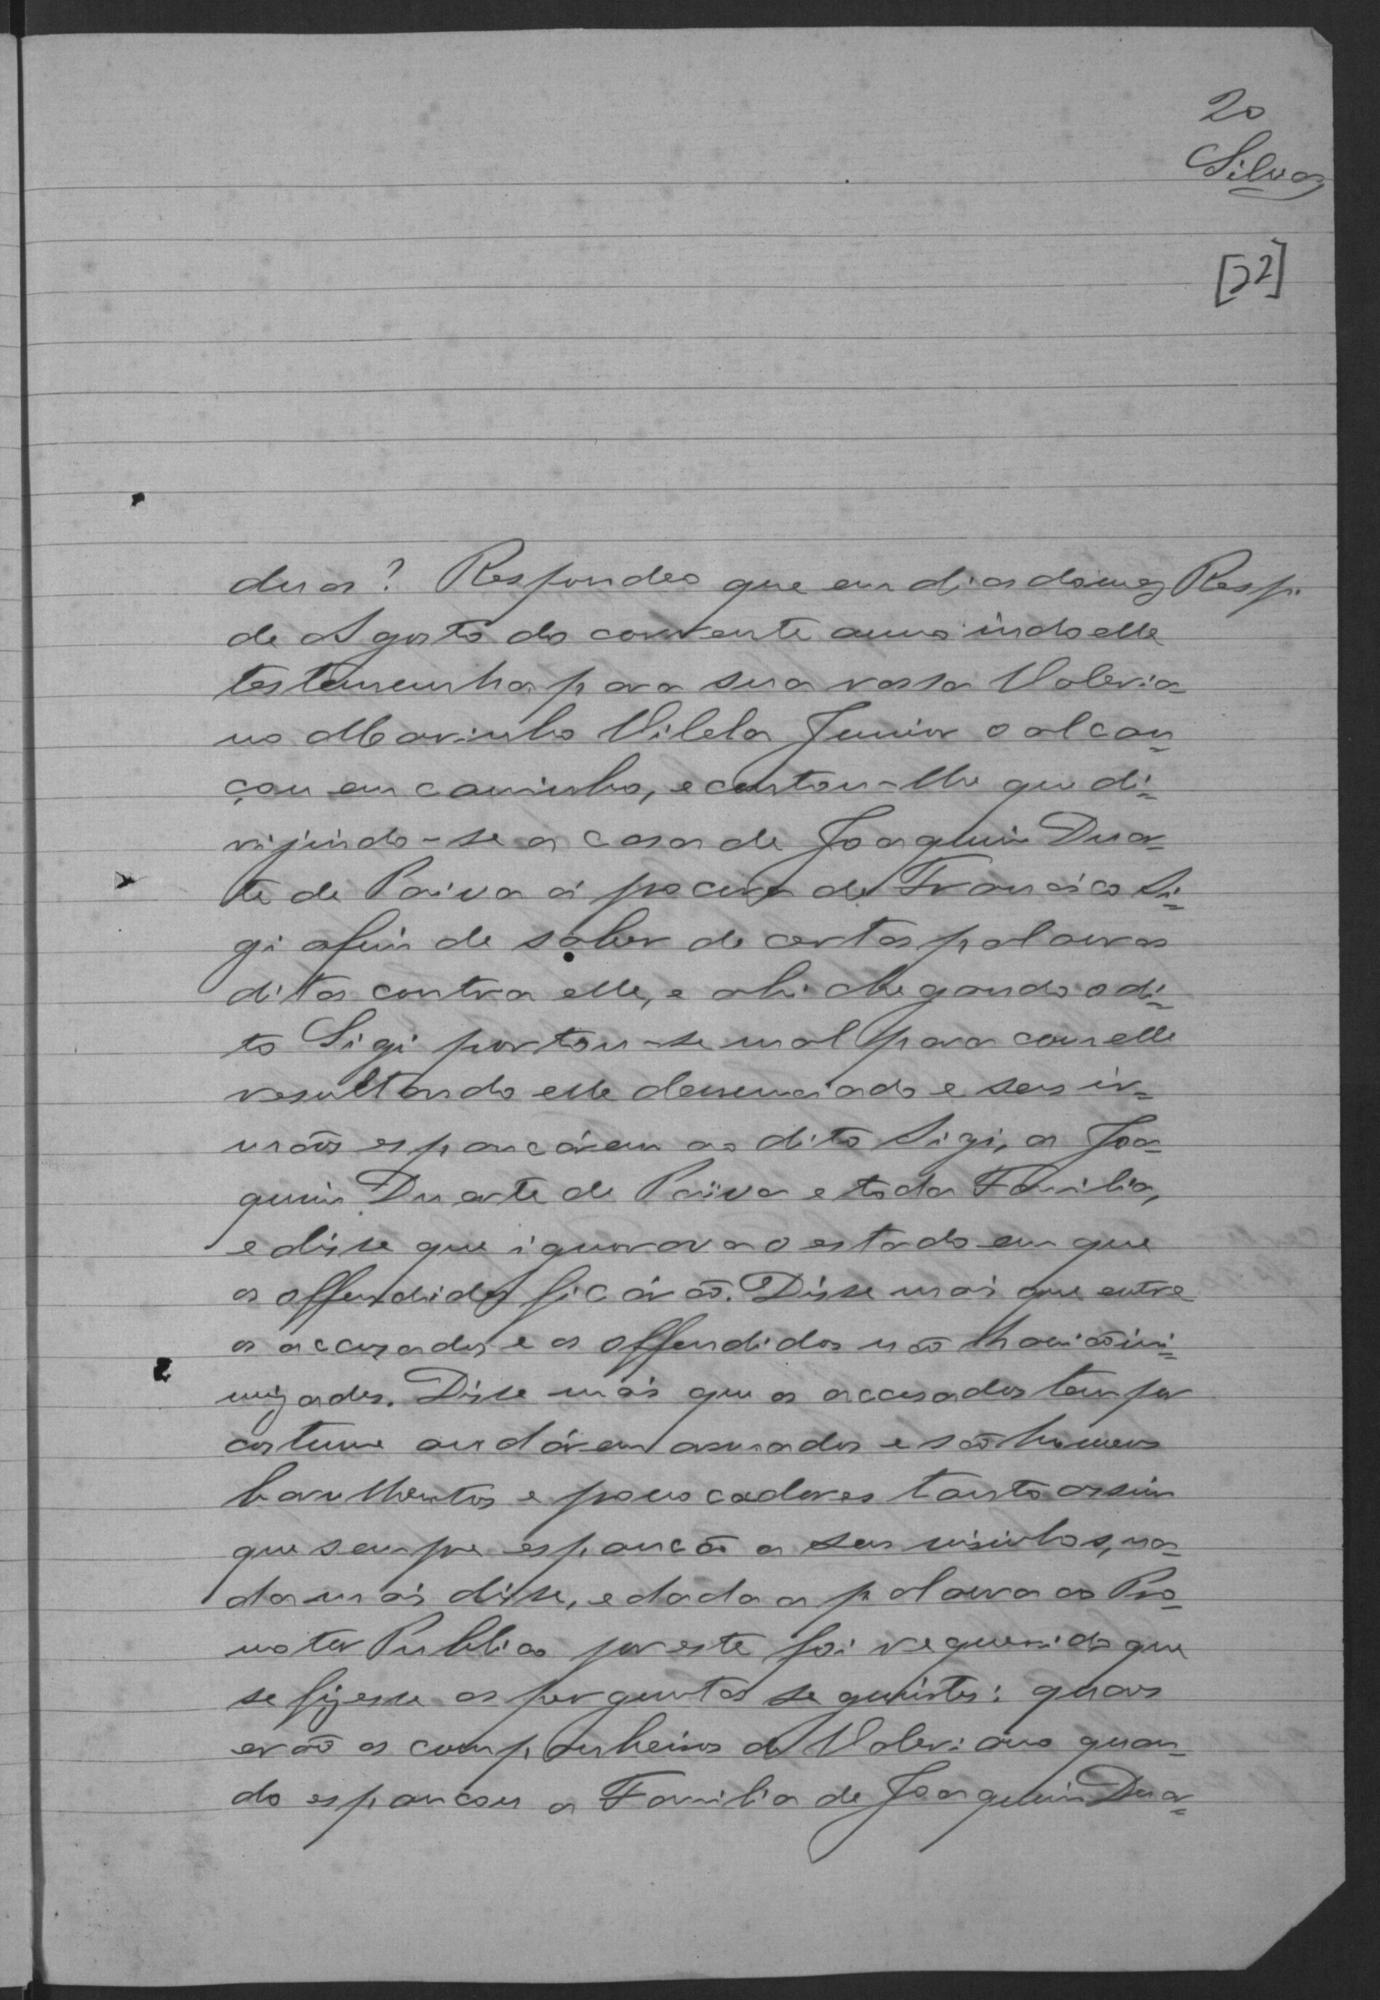 20
Silva
[22]
duas? Respondeo que em dias do mez Resp.
de Agosto do corrente anno indo elle
testemunha para sua rossa Valeria=
no Marinho Vilela Junior o alcan=
çou em caminho, e contou-lhe que di=
rijindo-se a casa de Joaquim Duar=
te de Paiva á procura de Francisco Si=
gi afim de saber de certas palavras
ditas contra elle, e ahi chegando o di=
to Sigi portou-se mal para com elle
resultando elle denunciado e seus ir=
mãos espancárem ao dito Sigi, a Joa=
quim Duarte de Paiva e toda Familia,
e disse que ignorava o estado em que
os offendidos ficárão. Disse mais que entre
os accusados e os offendidos não havião ini=
mizades. Disse mais que os accusados tem por
costume andárem armados e são homens
barulhentos e provocadores tanto assim
que sempre espancão a seus visinhos, na=
da mais disse, e dada a palavra ao Pro=
motor Publico por este foi requerido que
se fizesse as perguntas seguintes: quaes
erão os companheiros de Valeriano quan=
do espancou a Familia de Joaquim Duar=